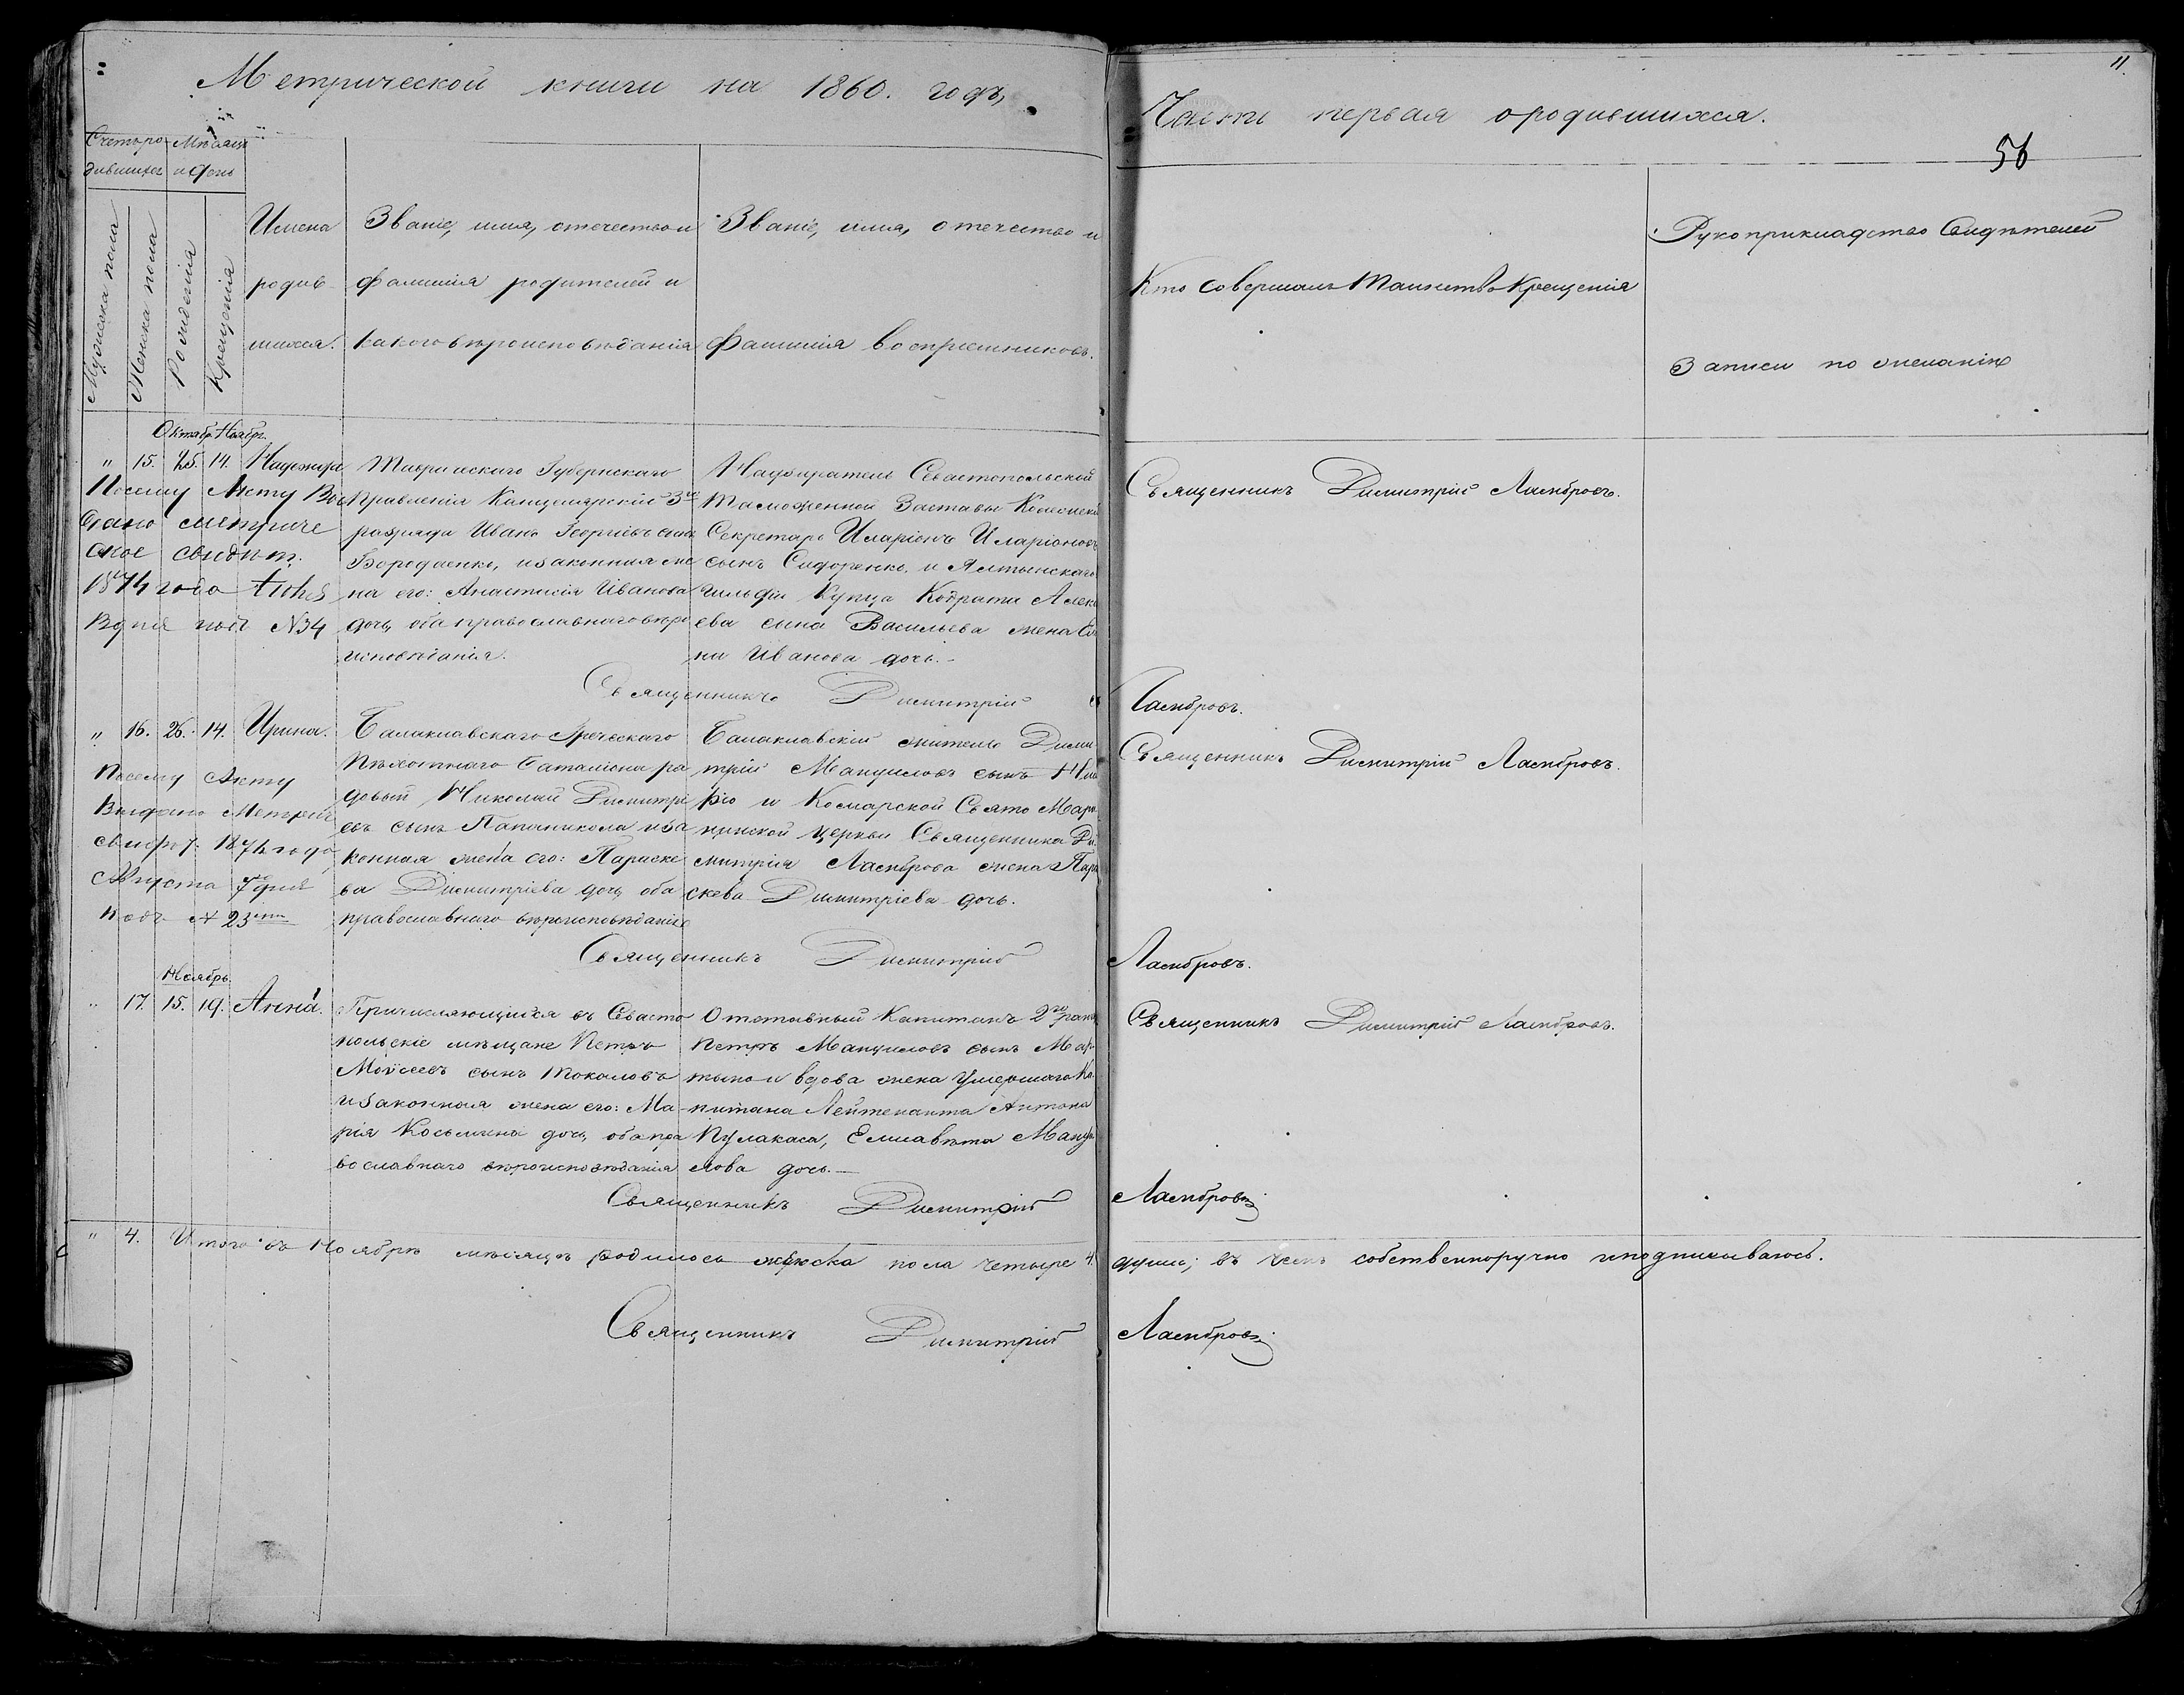 Метрической книги на 1860. годъ,
Часть первая ородившихся.
11.
56
Счетъ ро-
дившихся
Мѣсяцъ
и день
Мужеска пола
Женска пола
Рожденія
Крещенія
Имена
родив-
шихся.
Званіе, имя, отечество и
фамилія родителей и
какого вѣроисповѣданія
Званіе, имя, отечество и
фамилія воспріемниковъ.
Кто совершалъ Таинство Крещенія
Рукоприкладство Свидѣтелей
Записи по желанію
Октябр. Ноябр.
" 15. 25. 14. Надежда
По сему Акту Вы
дано метриче
ское свидѣт.
1874 года
под № 34
Таврическаго Губернскаго
Правленія Канцелярскій 3го
разряда Иванъ Георгіевъ сынъ
Бородаенко, изаконная же
на его: Анастасія Иванова
дочь, оба православнаго вѣро
исповѣданія.
Надзиратель Севастопольской
Таможенной Заставы Колежскій
Секретарь Иларіонъ Иларіоновъ
сынъ Сидоренко, и Ялтынскаго
гильдіи Купца Кодрата Алек
ева сына Васильева жена
на Иванова дочь.-
Священникъ Димитрій Ламбровъ.
Священникъ Димитрій Ламбровъ.
" 16. 26. 14. Ирина.
По сему Акту
Выдано Метрич
свидѣт. 1874 года
Августа 7 дня
подъ № 23
Балаклавскаго Греческаго
Пѣхотнаго Баталіона ря
довый Николай Димитрі
евъ сынъ Папаникола иза
конная жена его: Параске
ва Димитріева дочь, оба
православнаго вѣроисповѣданія
Балаклавскій житель Дими
трій Мануиловъ сынъ
и Комарской Свято Мари
нинской церкви Священника Ди
митрія Ламброва жена Пара
скева Димитріева дочь.
Священникъ Димитрій Ламбровъ.
Священникъ Димитрій Ламбровъ.
Ноябрь.
" 17. 15. 19. Анна.
Причисляющійся въ Севасто
польскіе мѣщане Петръ
Моѵсеевъ сынъ Токаловъ
изаконная жена его: Ма-
рія Косьмина дочь, оба пра
вославнаго вѣроисповѣданія
Отставный Капитанъ 2го ранга
Петръ Мануиловъ сынъ
и вдова жена умершаго Ка
питана Лейтенанта Антона
Пулакаса, Елисавета Мануи
лова дочь.-
Священникъ Димитрій Ламбровъ.
Священникъ Димитрій Ламбровъ
" 4. Итого въ Ноябрѣ мѣсяцѣ родилось женска пола четыре 4. души; въ чемъ собственноручно иподписываюсь.
Священникъ Димитрій Ламбровъ